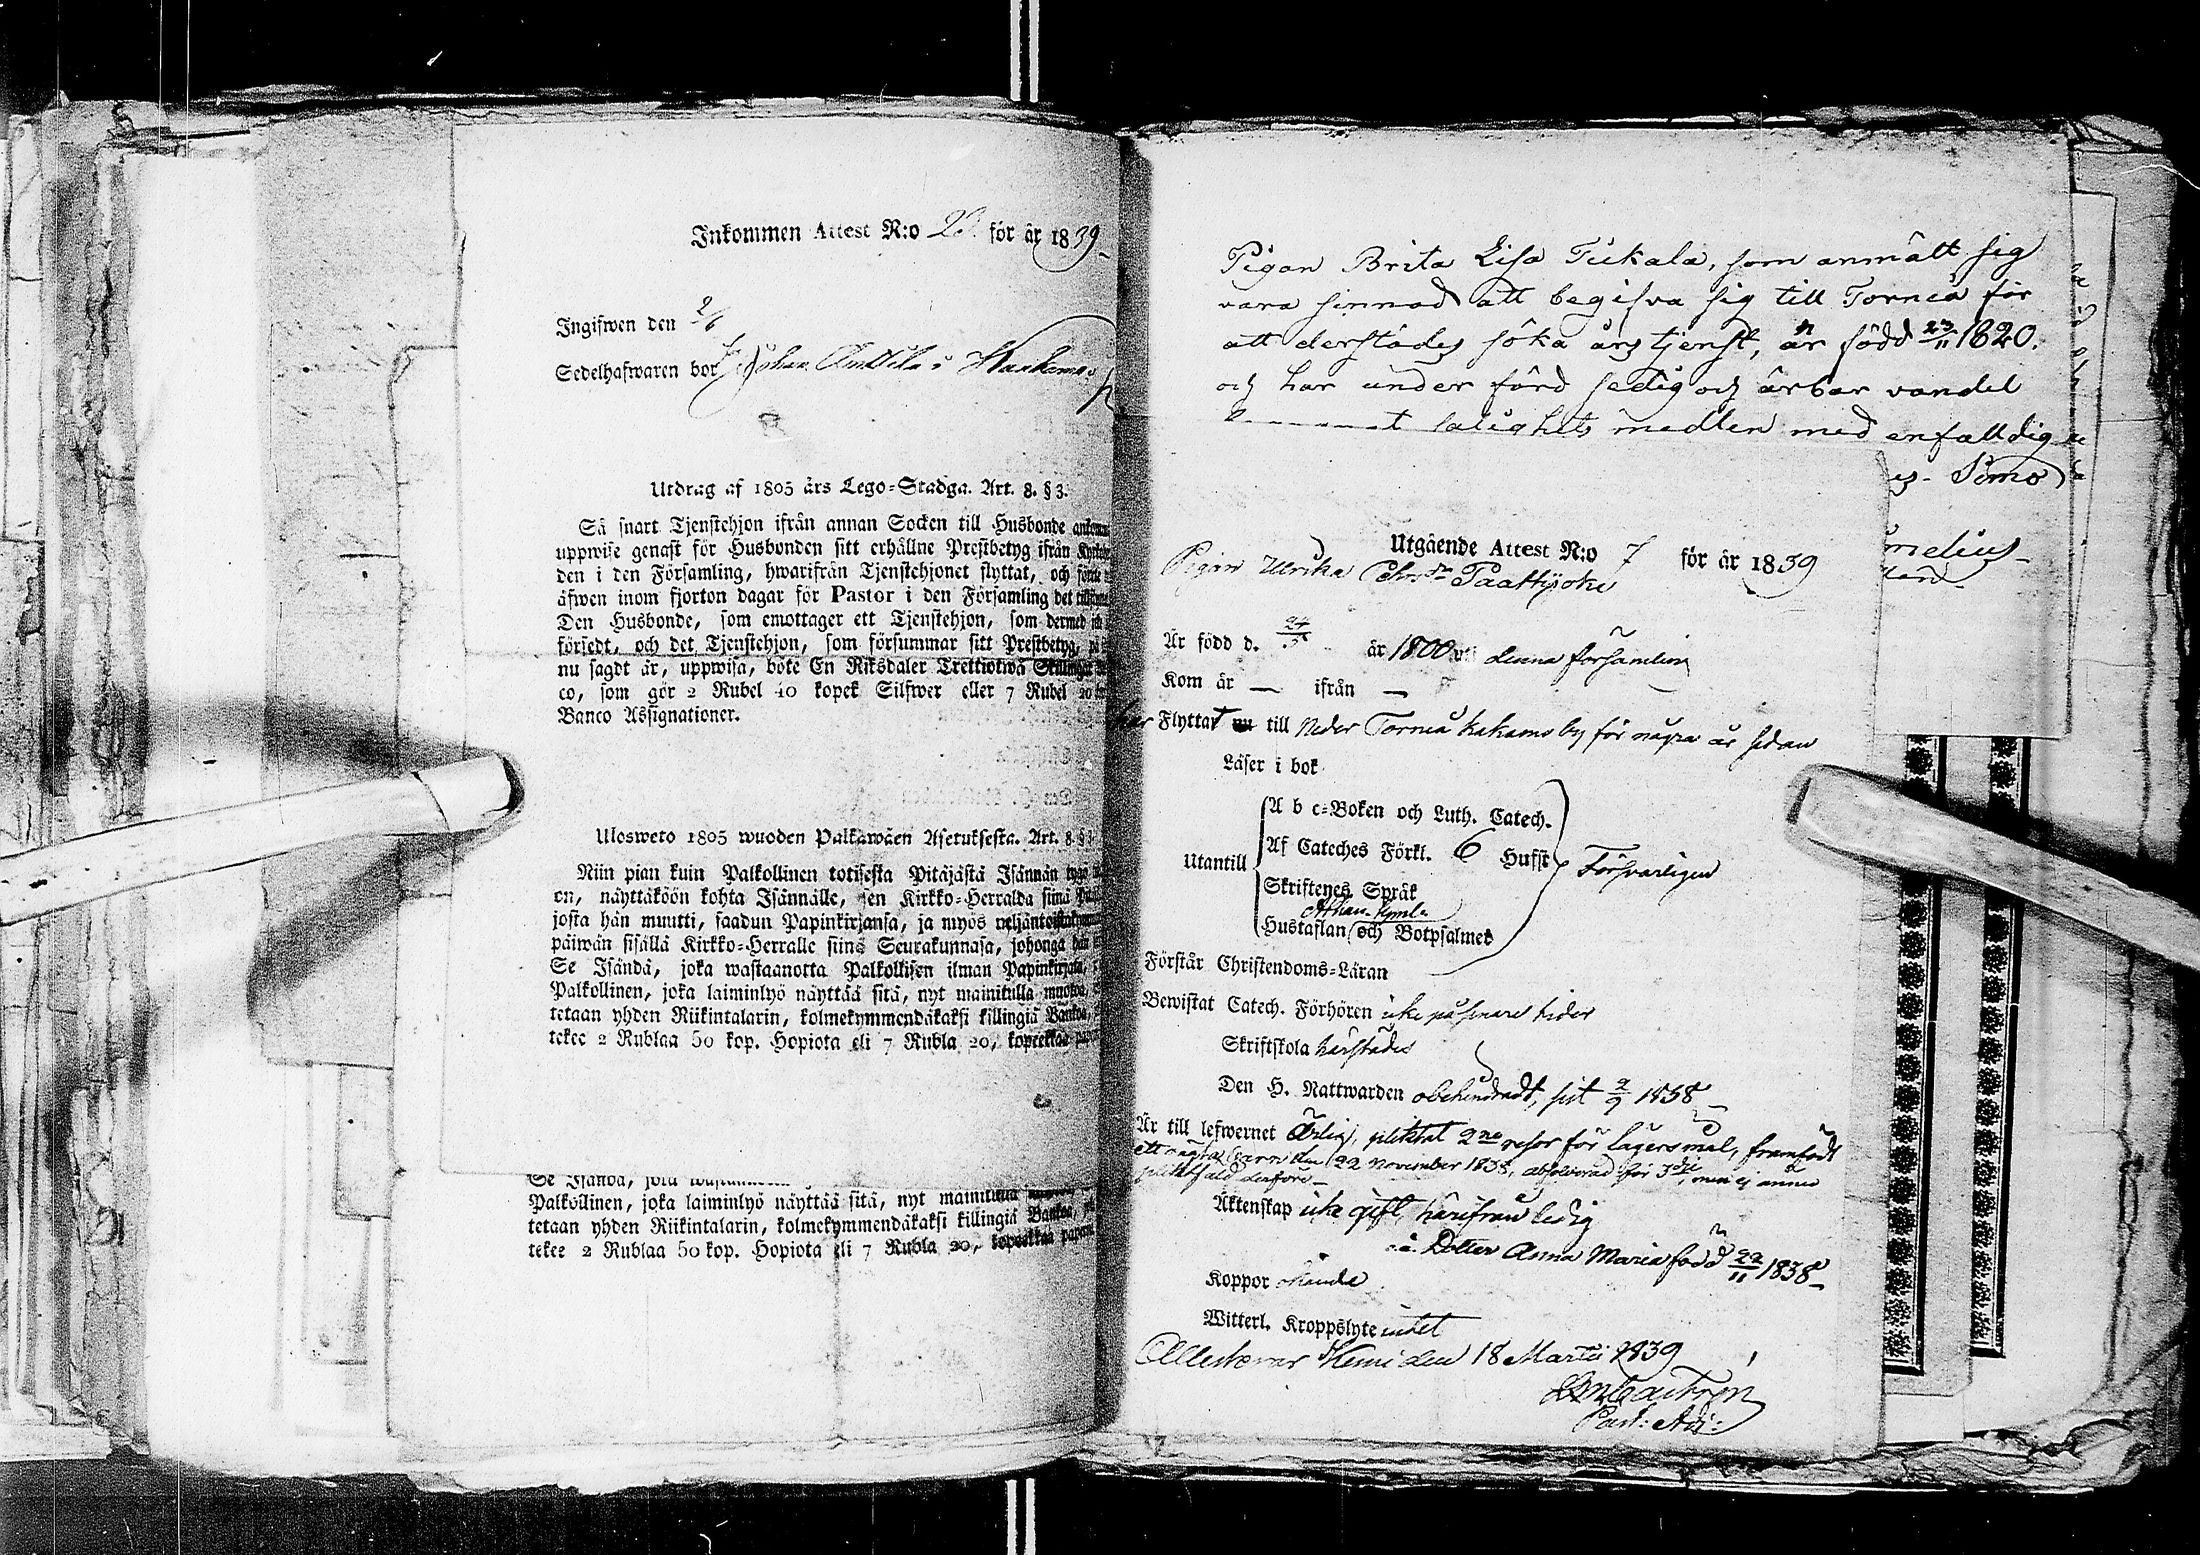 Inkommen Attest N:o 26. för år 1839
Ingifwen den 2/6
Sedelhafwaren bor Johan Anttila i Kaakamo
Utdrag af 1805 års Lego-Stadga. Art. 8. § 3.
Så snart Tjenstehjon ifrån annan Socken till Husbonde
uppwise genast för Husbonden sitt erhållne Prestbetyg ifrån
den i den Församling, hwarifrån Tjenstehjonet flyttat, och
äfwen inom fjorton dagar för Pastor i den Församling det
Den Husbonde, som emottager ett Tjenstehjon, som dermed
försedt, och det Tjenstehjon, som försummar sitt Prestbetyg, på
nu sagdt är, uppwisa, böte En Riksdaler Trettiotwå Skillingar
co, som gör 2 Rubel 40 kopek Silfwer eller 7 Rubel 20
Banco Assignationer.
Ulosweto 1805 wuoden Palkawäen Asetuksesta. Art. 8 § 3
Niin pian kuin Palkollinen toisesta Pitäjästä Isännän tygö
on, näyttäköön kohta Isännälle, sen Kirkko-Herralda siinä
josta hän muutti, saadun Papinkirjansa, ja myös neljäntoistakymmenen
päiwän sisällä Kirkko-Herralle siinä Seurakunnasa, johonga hän
Se Isändä, joka wastaanotta Palkollisen ilman Papinkirjata,
Palkollinen, joka laiminlyö näyttää sitä, nyt mainitulla muotoa,
tetaan yhden Riikintalarin, kolmekymmendäkaksi killingiä Bankoa,
tekee 2 Rublaa 50 kop. Hopiota eli 7 Rubla 20, kopeekkaa
Se Isändä, joka
Palkollinen, joka laiminlyö näyttää sitä, nyt mainitulla
tetaan yhden Riikintalarin, kolmekymmendäkaksi killingiä Bankoa,
tekee 2 Rublaa 50 kop. Hopiota eli 7 Rubla 20, kopeekkaa
Pigan Brita Lisa Tiikala, som anmält sig
vara sinnad att begifva sig till Torneå för
att derstädes söka årstjenst, är född 23/11 1820.
och har under förd sedig och ärbar vandel
salighets medlen med enfalldig
Simo
Utgående Attest N:o 7 för år 1839
Pigan Ulrika Pehrsdr Paattijoki
Är född d. 24/5 år 1800 uti denna församling
Kom år — ifrån —
har Flyttat nu till Neder Torneå kakamo by för några år sedan
Läser i bok
A b c-Boken och Luth. Catech.
Utantill Af Cateches Förkl. 6 Hufst Försvarligen
Skriftenes Språk
Athan. Symb.
Hustaflan och Botpsalmer
Förstår Christendoms-Läran
Bewistat Catech. Förhören icke på senare tider
Skriftskola härstädes
Den H. Nattwarden obehindradt, sist 2/9 1838
Är till lefwernet Ärlig, pliktat 2ne resor för lägersmål, framfödt
ett oägta barn den 22 November 1838, absolverad för 3dje, men ej ännu
pliktfäld derföre
Äktenskap icke gift, härifrån ledig
Dotter Anna Maria född 22/11 1838
Koppor okända
Witterl. Kroppslyte intet
Attesterar Kemi den 18 Martii 1839
Past: Adj: